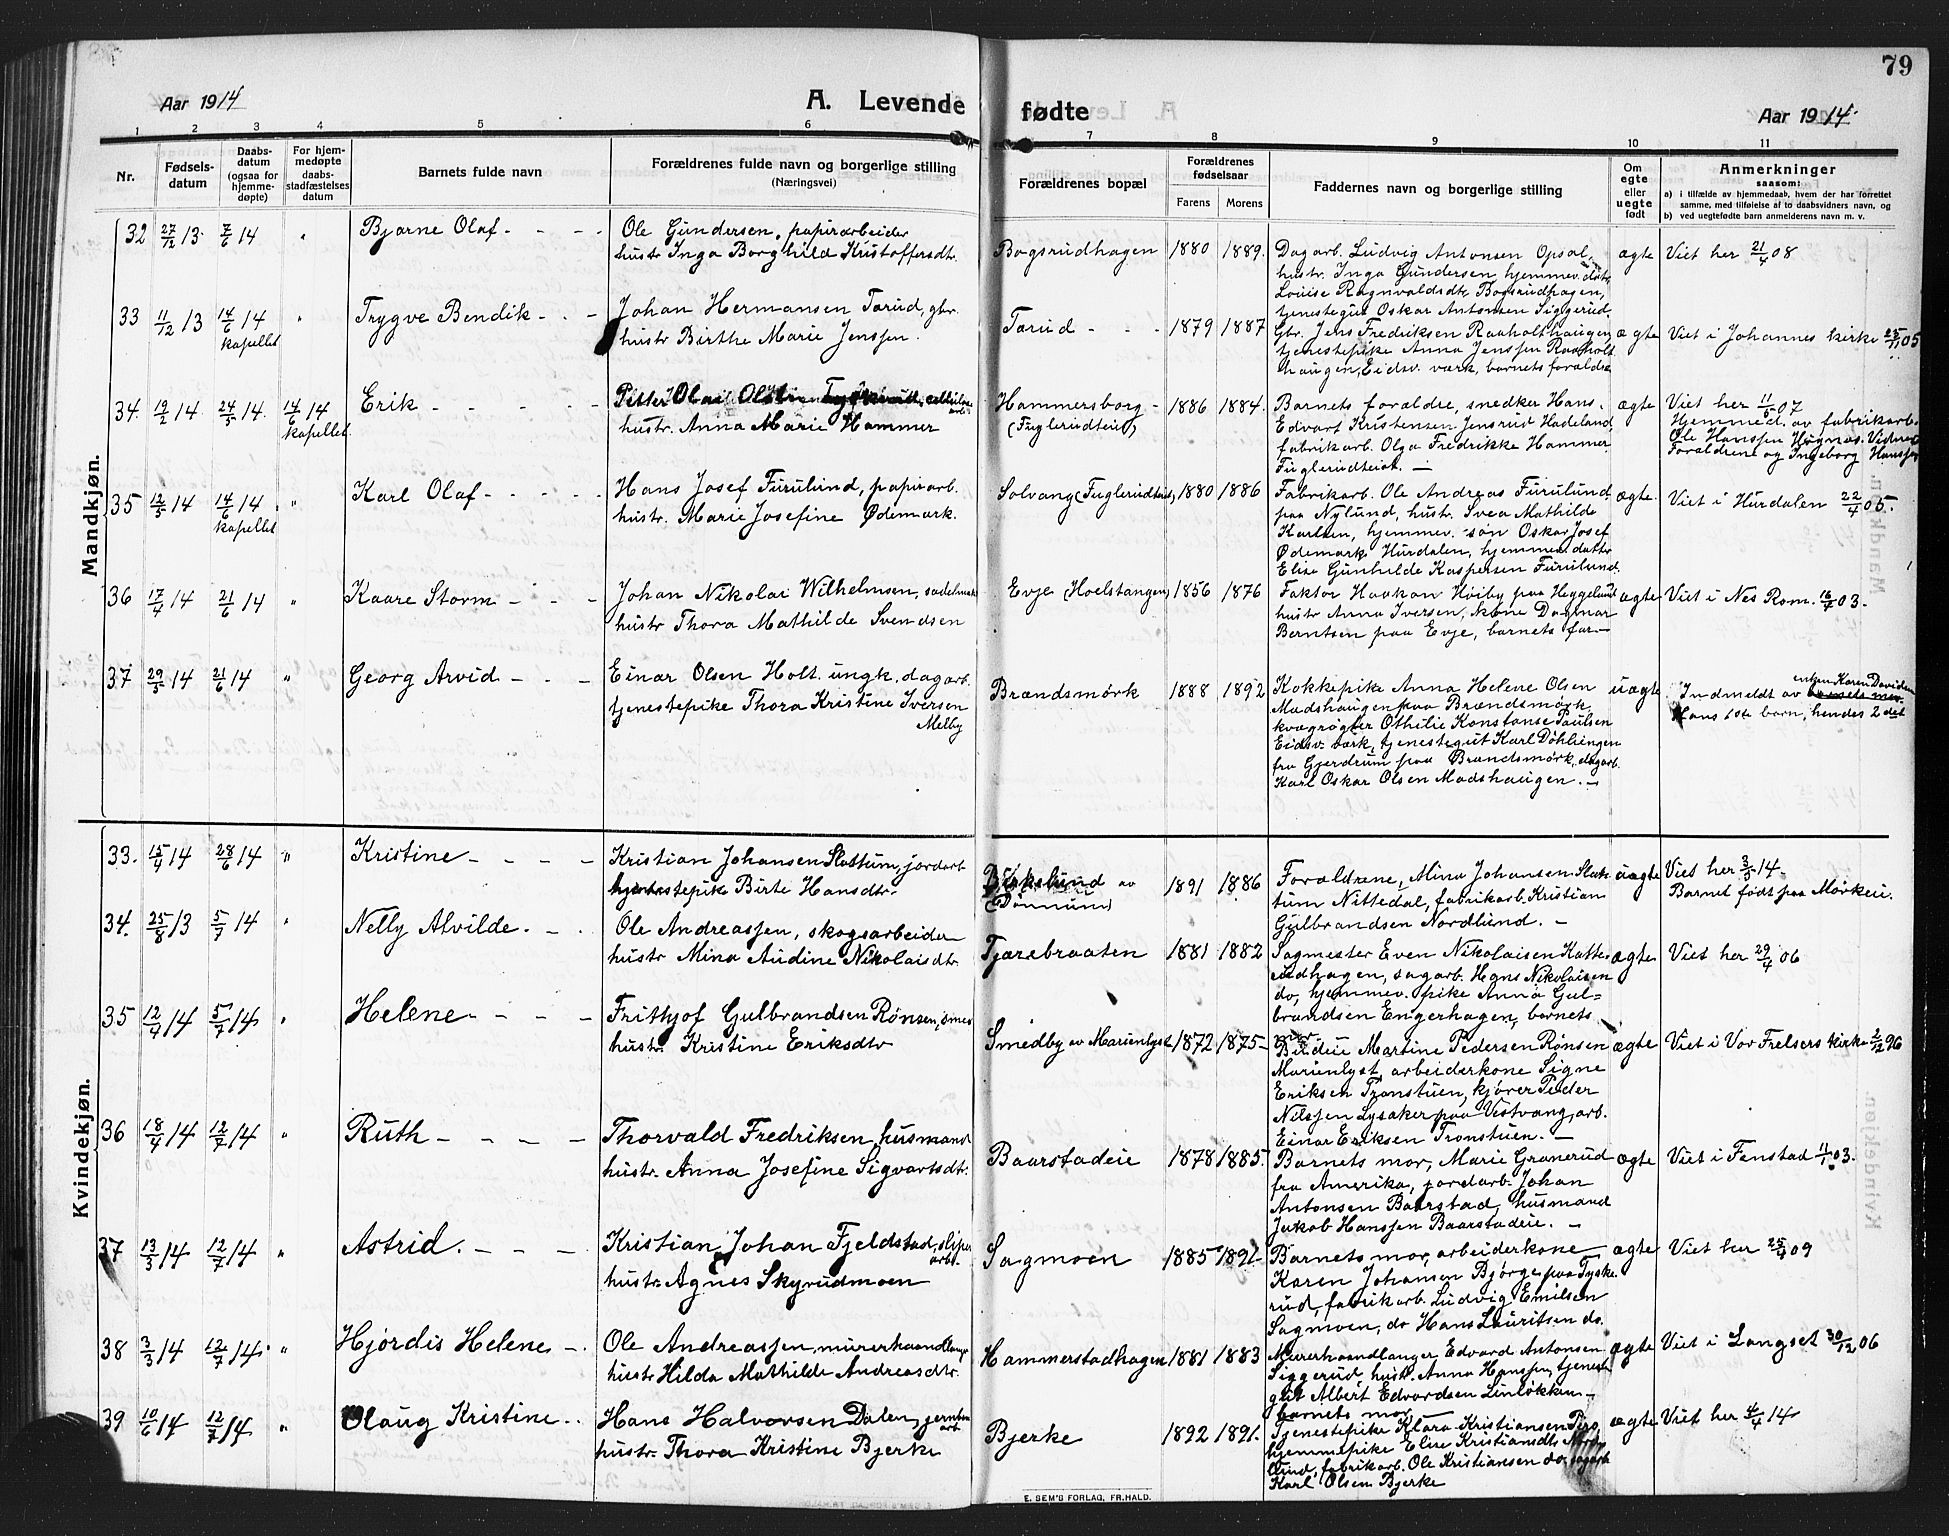 79
Aar 1914
A. Levende fødte
Aar 1914.
1 2 3 4 5 6 7 8 9 10 11
Nr.
Fødsels-
datum
Daabs-
datum
(ogsaa for
hjemme-
døpte)
For hjem-
medøpte
daabs-
stadfæstelses
datum
Barnets fulde navn
Forældrenes fulde navn og borgerlige stilling
(Næringsvei)
Forældrenes bopæl
Forældrenes
fødselsaar
Farens Morens
Faddernes navn og borgerlige stilling
Om
egte
eller
uegte
født
Anmerkninger
saasom:
a) i tilfælde av hjemmedaab, hvem der har forrettet
samme, med tilføielse af to daabsvidners navn, og
b) ved uegtefødte barn anmelderens navn m. v.
Mandkjøn.
32 27/12 13. 7/6 14 " Bjarne Olaf - - - -
Ole Gundersen, papirarbeider
hustr. Inga Borghild Kristoffersdtr.
Bogsrudhagen 1880 1889.
Dagarb. Ludvig Antonsen Opsal,
hustr. Inga Gundersen, hjemmev. datr.
Louise Ragnvaldsdtr. Bogsrudhagen,
tjenestegut Oskar Antonsen Siggerud
ægte Viet her 21/4 08
33 11/12 13 14/6 14 " Trygve Bendik - - -
kapellet
Johan Hermansen Tærud, gbr.
hustr. Birthe Marie Jenssen.
Tærud - - - 1879 1887
Gbr. Jens Fredriksen Raaholthaugen,
tjenestepike Anna Jenssen Raaholt
haugen, Eidsv. værk, barnets forældre
ægte Viet i Johannes kirke 25/11 05
34. 19/2 14 24/5 14. 14/6 14 Erik - - - - -
kapellet
Petter Olai Olsen
hustr. Anna Marie Hammer
Hammersborg -
(Fuglerudteiet)
1886 1884.
Barnets forældre, snedker Hans
Edvart Kristensen Jensrud Hadeland,
fabrikarb. Olga Fredrikke Hammer
Fuglerudteiet. —
ægte Viet her 11/5 07
Hjemmed. av fabrikarb.
Ole Hanssen Høgnas. Vidner
Forældrene og Ingeborg Hanssen
35 12/3 14 14/6 14 " Karl Olaf - - - -
kapellet
Hans Josef Furulund, papirarb.
hustr. Marie Josefine Ødemark.
Solvang (Fuglerudteiet) 1880 1886
Fabrikarb. Ole Andreas Furulund
paa Nylund, hustr. Svea Mathilde
Karlsen, hjemmev. søn Oskar Josef
Ødemark, Hurdalen, hjemmev. datter
Elise Gunhilde Kaspersen Furulund.
ægte. Viet i Hurdalen 22/4 05.
36 17/4 14 21/6 14 " Kaare Storm - - -
Johan Nikolai Wilhelmsen,
hustr. Thora Mathilde Svendsen
Evje (Hoelstangen) 1856 1876
Faktor Haakon Høiby paa Heggelund
hustr. Anna Iversen, kone Dagmar
Berntsen paa Evje, barnets far —
ægte Viet i Nes Rom. 16/7 03.
37 29/3 14 21/6 14 " Georg Arvid - - -
Einar Olsen Holt. ungk. dagarb.
tjenestepike Thora Kristine Iversen
Melby
Brændsmørk 1888 1892
Kokkepike Anna Helene Olsen
Madshaugen paa Brændsmørk,
kvægrøgter Othilie Konstanse Paulsen
Eidsv. værk, tjenestegut Karl Døhlieengen
fra Gjerdrum paa Brændsmørk, dagarb.
Karl Oskar Olsen Madshaugen. —
uægte Indmeldt av enken Karen Davidsen
Hans 1ste barn, hendes 2det
Kvindekjøn.
33. 15/4 14 28/6 14 " Kristine - - - -
Kristian Johansen Slattum, jordarb.
tjenestepike Birte Hansdtr.
Birkelund av
(Dønnum)
1891 1886
Forældrene, Mina Johansen Slat-
tum Nittedal, fabrikarb. Kristian
Gulbrandsen Nordlund. —
uægte Viet her 3/5 14.
Barnet født paa Mørkeie.
34. 25/8 13 5/7 14 " Nelly Alvilde. - -
Ole Andreassen, skogsarbeider
hustr. Mina Andine Nikolaisdtr.
Tjærebraaten 1881 1882
Sagmester Even Nikolaisen Katte-
rudhagen, sagarb. Hans Nikolaisen
do, hjemmev. pike Anna Gul=
brandsen Engerhagen, barnets
mor
ægte Viet her 29/4 06
35 12/4 14 5/7 14 " Helene - - - -
Frithjof Gulbrandsen Rønsen, smed
hustr. Kristine Eriksdtr
Smedby av Marienlyst 1872 1875
Budeie Martine Pedersen Rønsen
Marienlyst, arbeiderkone Signe
Eriksen Tronstuen, kjører Peder
Nilssen Lysaker paa Vestvang, arb.
Einar Eriksen Tronstuen. —
ægte Viet i Vor Frelsers kirke 2/12 96
36 18/4 14 12/7 14 " Ruth - - - -
Thorvald Fredriksen, husmand
hustr. Anna Josefine Sigvartsdtr.
Baarstadeie 1878 1885.
Barnets mor, Marie Granerud
fra Amerika, jordarb. Johan
Antonsen Baarstad, husmand
Jakob Hanssen Baarstadeie. —
ægte Viet i Fenstad 11/1 03.
37 13/3 14 12/7 14 " Astrid. - - -
Kristian Johan Fjeldstad, sliper
arb.
hustr. Agnes Skyrudmoen
Sagmoen 1885 1891
Barnets mor, arbeiderkone
Karen Johansen Bjørge paa Tyske-
rud, fabrikarb. Ludvig Emilsen
Sagmoen, do Hans Lauritsen do.
ægte Viet her 25/4 09
38 3/3 14 12/7 14. " Hjørdis Helene - -
Ole Andreassen, murerhaandlanger
hustr. Hilda Mathilde Andreasdtr.
Hammerstadhagen 1881 1883
Murerhaandlanger Edvard Antonsen
Siggerud, hustr. Anna Hanssen, tjeneste
gut Albert Edvardsen Linløkken —
barnets mor
ægte Viet i Langset 30/12 06
39 10/6 14 12/7 14 " Olaug Kristine - -
Hans Halvorsen Dalen, jernban
arb.
hustr. Thora Kristine Bjerke
Bjerke 1892 1891.
Tjenestepike Klara Kristiansen
hjemmepike Elise Kristiansdtr.
fabrikarb. Ole Kristiansen do. sagarb.
Karl Olsen Bjerke
ægte Viet her 4/4 14
E. SEM'S FORLAG, FR.HALD.